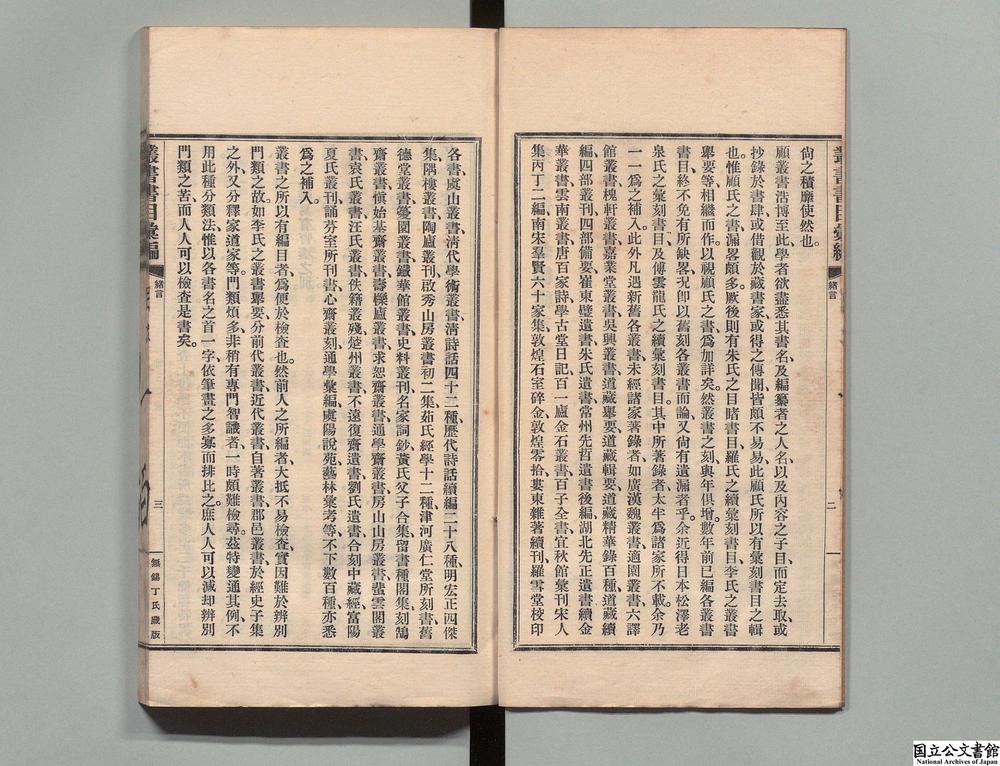 叢書書目彙編
緒言
二
尙之積靡使然也。
顧叢書浩博至此、學者欲盡悉其書名、及編纂者之人名、以及內容之子目、而定去取、或
抄錄於書肆、或借觀於藏書家、或得之傳聞、皆頗不易易、此顧氏所以有彙刻書目之輯
也、惟顧氏之書、漏畧頗多。厥後則有朱氏之目睹書目、羅氏之續彙刻書目、李氏之叢書
舉要等、相繼而作。以視顧氏之書、爲加詳矣。然叢書之刻、與年俱增、數年前已編各叢書
書目、終不免有所缺畧、况卽以舊刻各叢書而論、又尙有遺漏者乎。余近得日本松澤老
泉氏之彙刻書目、及傅雲龍氏之續彙刻書目。其中所著錄者、太半爲諸家所不載。余乃
一一爲之補入。此外凡遇新舊各叢書、未經諸家著錄者、如廣漢魏叢書、適園叢書、六譯
館叢書、槐軒叢書、嘉業堂叢書、吳興叢書、道藏舉要、道藏輯要、道藏精華錄百種、道藏續
編、四部叢刊、四部備要、崔東壁遺書、朱氏遺書、常州先哲遺書後編、湖北先正遺書、續金
華叢書、雲南叢書、唐百家詩、學古堂日記、百一廬金石叢書、百子全書、宜秋館彙刊宋人
集丙丁二編、南宋羣賢六十家集、敦煌石室碎金、敦煌零拾、婁東雜著續刊、羅雪堂校印
各書、虞山叢書、淸代學術叢書、淸詩話四十二種、歷代詩話續編二十八種、明宏正四傑
集、隅樓叢書、陶廬叢刊、啟秀山房叢書初二集、茹氏經學十二種、津河廣仁堂所刻書、舊
德堂叢書、蔓園叢書、鐵華館叢書、史料叢刊、名家詞鈔、黃氏父子合集、留書種閣集、刻鵠
齋叢書、愼始基齋叢書、壽櫟廬叢書、求恕齋叢書、通學齋叢書、房山山房叢書、蟄雲閣叢
書、袁氏叢書、汪氏叢書、佚籍叢殘、楚州叢書、不遠復齋遺書、劉氏遺書、合刻中藏經、富陽
夏氏叢刊、誦芬室所刊書、心齋叢刻、通學彙編、虞陽說苑、藝林彙考等、不下數百種、亦悉
爲之補入。
叢書之所以有編目者、爲便於檢查也。然前人之所編者、大抵不易檢查、實因難於辨別
門類之故。如李氏之叢書舉要、分前代叢書、近代叢書、自著叢書、郡邑叢書、於經史子集
之外、又分釋家道家等。門類煩多、非稍有專門智識者、一時頗難檢尋。茲特變通其例、不
用此種分類法、惟以各書名之首一字、依筆畫之多寡而排比之。庶人人可以減却辨別
門類之苦、而人人可以檢查是書矣。
叢書書目彙編
緒言
三
無錫丁氏藏版
国立公文書館
National Archives of Japan